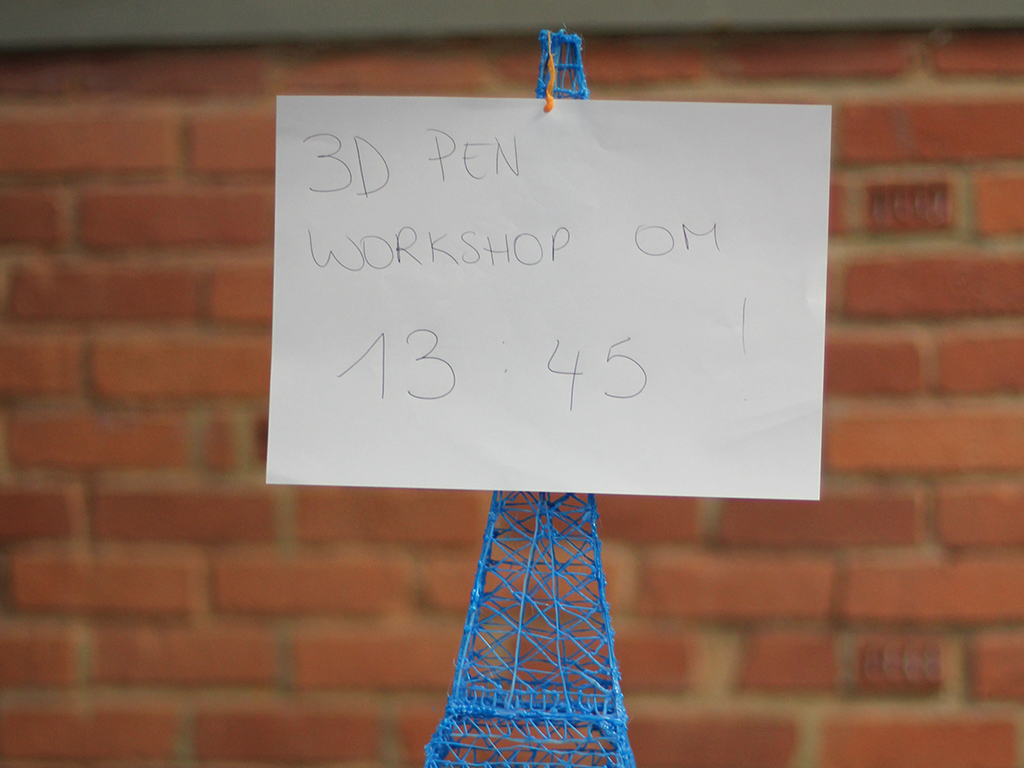 3D PEN
WORKSHOP OM
13:45 !